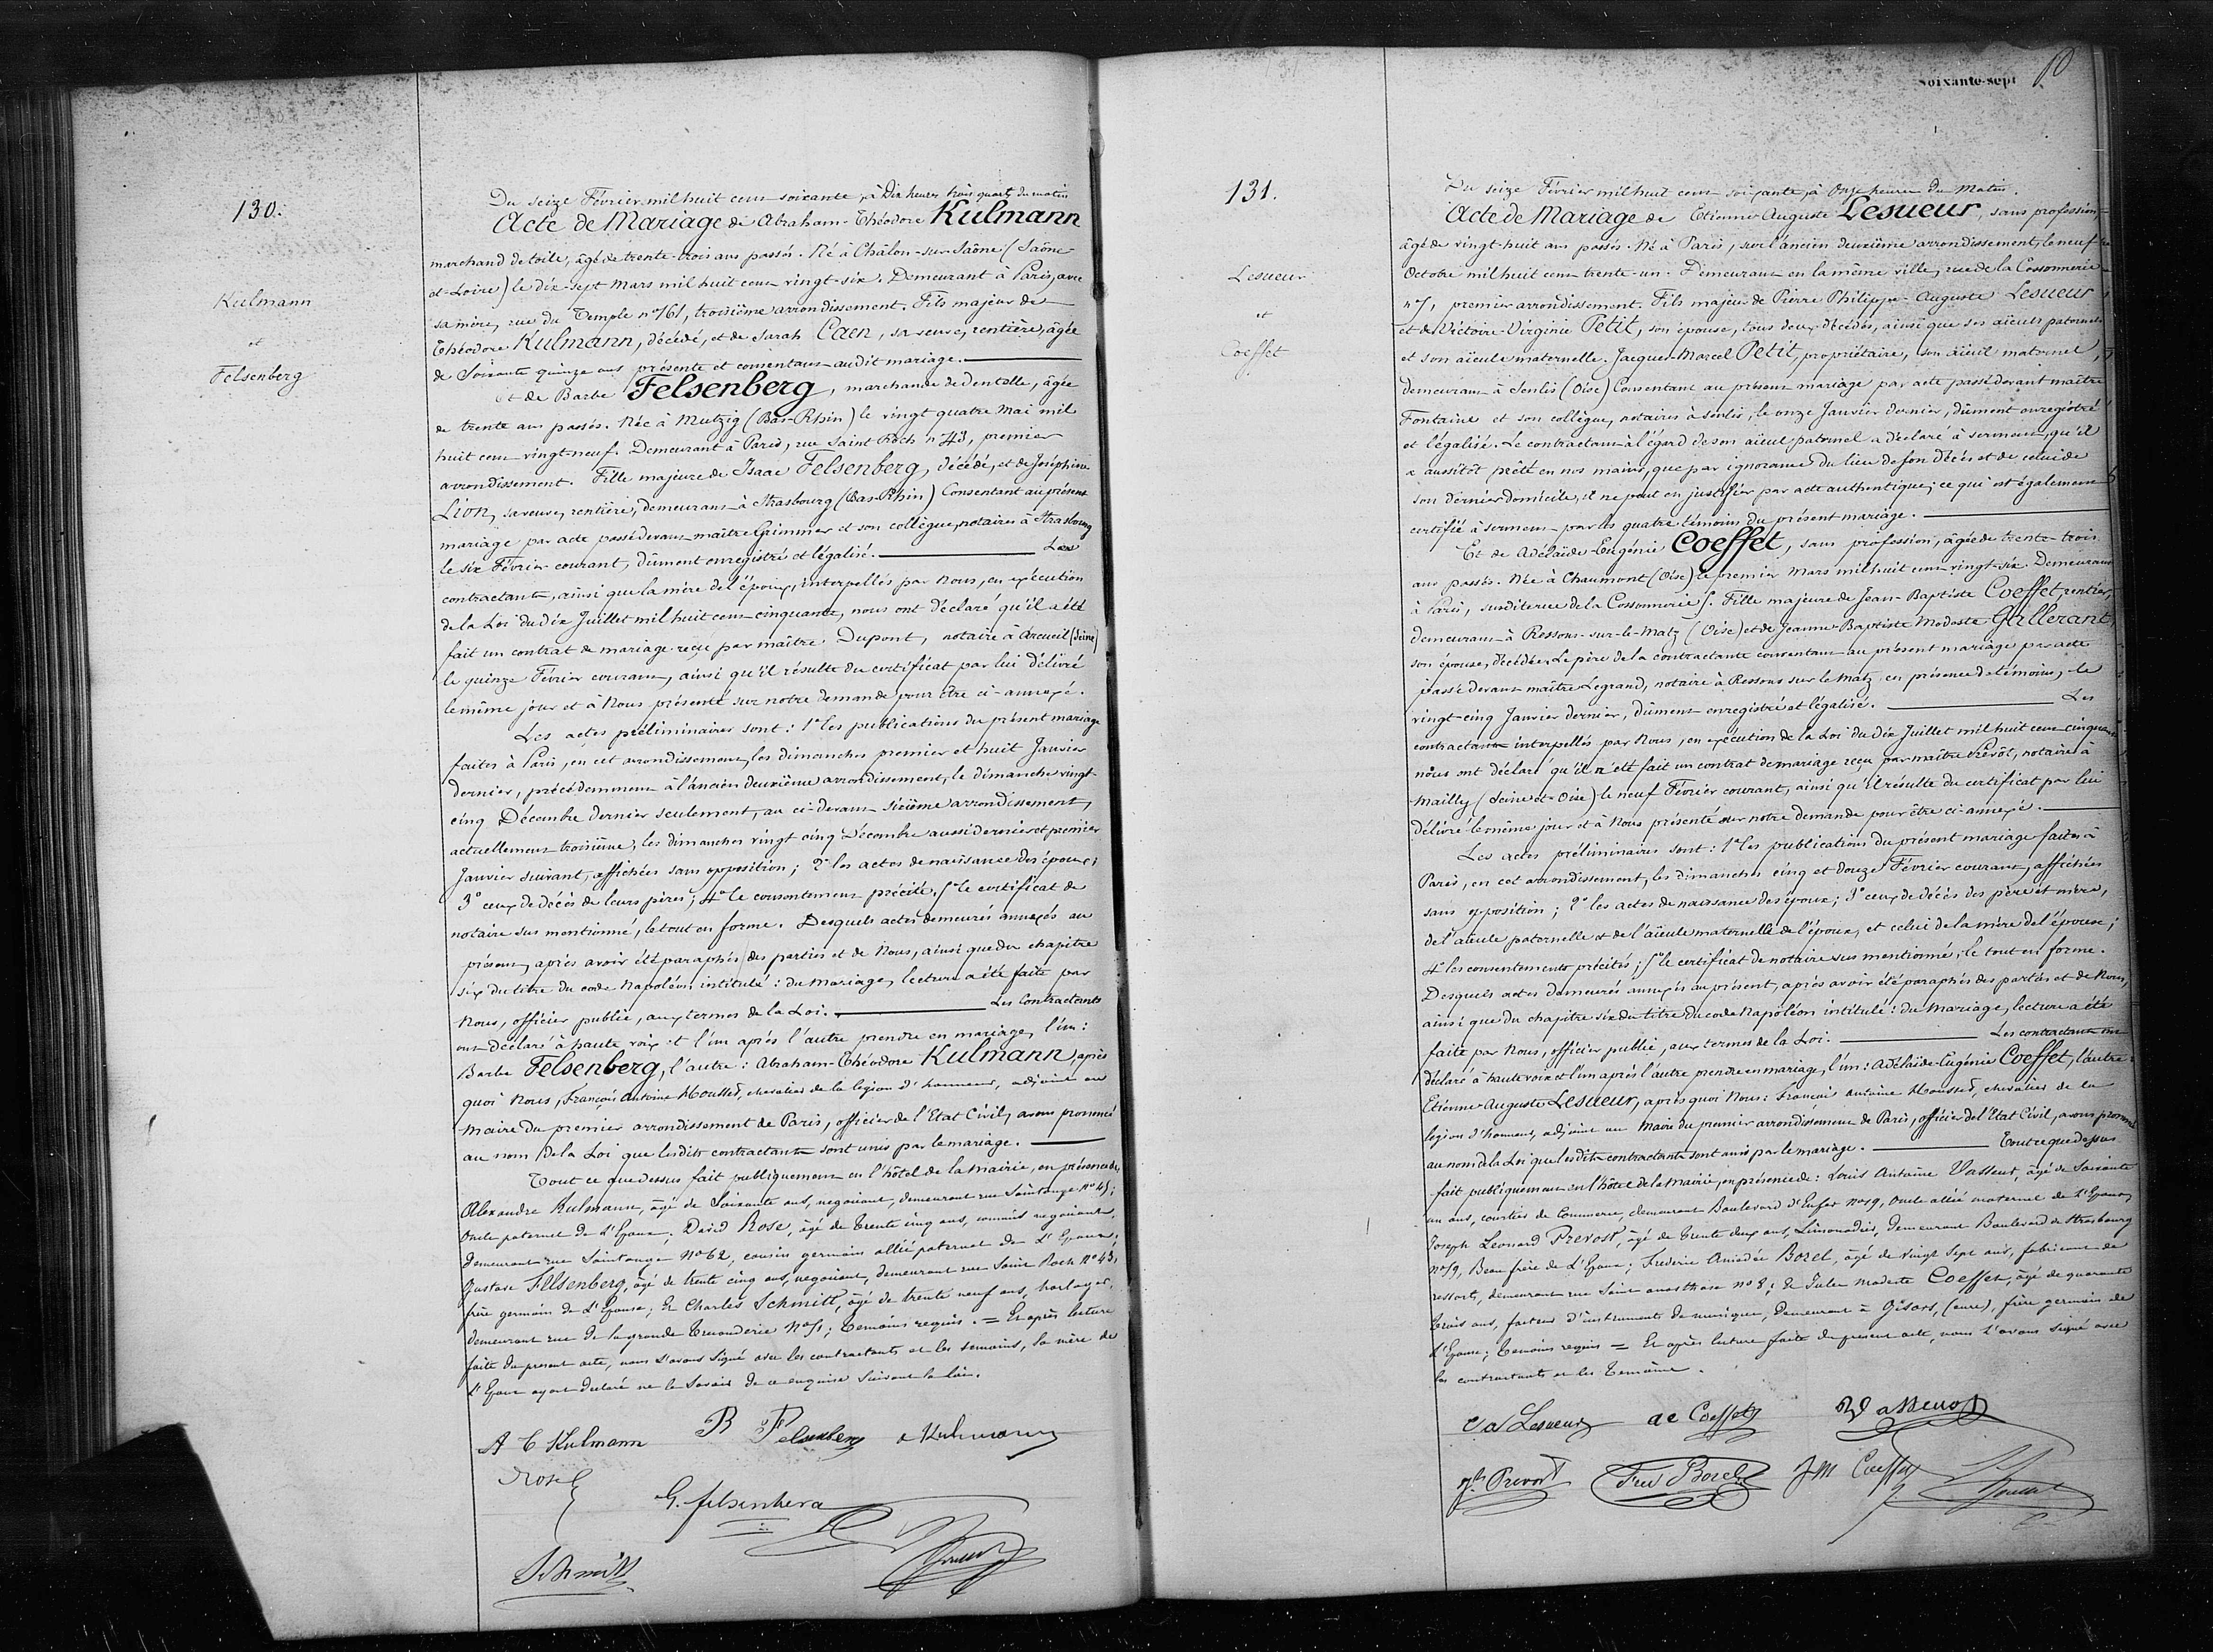 130.
Kulmann
et
Felsenberg
Du seize Février mil huit cent soixante, à Dix heures trois quarts du matin
Acte de Mariage de Abraham-Théodore Kulmann
marchand de toile, âgé de trente-trois ans passés. Né à Châlon-sur-Saône (Saône-
et-Loire) le dix-sept Mars mil huit cent vingt-six. Demeurant à Paris, avec
sa mère, rue du Temple n° 161, troisième arrondissement. Fils majeur de
Théodore Kulmann, décédé, et de Sarah Caen, sa veuve, rentière, âgée
de Soixante quinze ans présente et consentant audit mariage.
Et de Barbe Felsenberg, marchande de dentelle, âgée
de trente ans passés. Née à Mutzig (Bas-Rhin) le vingt quatre Mai mil
huit cent vingt-neuf. Demeurant à Paris, rue Saint Roch n° 43, premier
arrondissement. Fille majeure de Isaac Felsenberg, décédé, et de Joséphine
Lion, sa veuve, rentière, demeurant à Strasbourg (Bas-Rhin) Consentant au présent
mariage par acte passé devant maître Grimmer et son collègue, notaires à Strasbourg
le six Février courant, dûment enregistré et légalisé. Les
contractants, ainsi que la mère de l'époux, interpellés par Nous, en exécution
de la Loi du dix Juillet mil huit cent cinquante, nous ont déclaré qu'il a été
fait un contrat de mariage reçu par maître Dupont, notaire à Arcueil (Seine)
le quinze Février courant, ainsi qu'il résulte du certificat par lui délivré
le même jour et à Nous présenté sur notre demande pour être ci-annexé.
Les actes préliminaires sont : 1° les publications du présent mariage
faites à Paris, en cet arrondissement, les dimanches premier et huit Janvier
dernier, précédemment à l'ancien deuxième arrondissement, le dimanche vingt-
cinq Décembre dernier seulement, au ci-devant sixième arrondissement,
actuellement troisième, les dimanches vingt cinq Décembre aussi dernier et premier
Janvier suivant, affichées sans opposition ; 2° les actes de naissance des époux ;
3° ceux de décès de leurs pères ; 4° le consentement précité. 5° le certificat de
notaire sus mentionné, le tout en forme. Desquels actes demeurés annexés au
présent, après avoir été paraphés des parties et de Nous, ainsi que du chapitre
six du titre du code Napoléon intitulé : du Mariage, lecture a été faite par
Nous, officier public, aux termes de la Loi. Les Contractants
ont déclaré à haute voix et l'un après l'autre prendre en mariage, l'un :
Barbe Felsenberg, l'autre : Abraham-Théodore Kulmann, après
quoi Nous, François Antoine Housset, chevalier de la légion d'honneur, adjoint au
Maire du premier arrondissement de Paris, officier de l'Etat Civil, avons prononcé
au nom de la Loi que lesdits contractants sont unis par le mariage.
Tout ce que dessus fait publiquement en l'hôtel de la Mairie, en présence de
Alexandre Kulmann, âgé de Soixante ans, negociant, demeurant rue Saintonge N° 45;
Oncle paternel de l'Epoux, David Rose, âgé de Trente cinq ans, commis negociant,
demeurant rue Saintonge N° 62, cousin germain allié paternel de l'Epoux;
Gustave Felsenberg, âgé de trente cinq ans, negociant, demeurant rue Saint Roch N° 43,
frère germain de l'Epouse; Et Charles Schmitt, âgé de trente neuf ans, horloger,
demeurant rue de la grande Truanderie N° 51; Temoins requis. = Et après lecture
faite du present acte, nous l'avons signé avec les contractants et les temoins, la mère de
l'Epoux ayant declaré ne le Savoir de ce enquise Suivant la loi.
A T Kulmann B Felsenberg A Kulmann
Rose
G. felsenberg
Schmitt
Soixante-sept
131.
Lesueur
et
Coeffet
Du seize Février mil huit cent soixante, à Onze heures du Matin.
Acte de Mariage de Etienne Auguste Lesueur, sans profession,
âgé de vingt-huit ans passés. Né à Paris, sur l'ancien deuxième arrondissement, le neuf
Octobre mil huit cent trente-un. Demeurant en la même ville, rue de la Cossonnerie
n° 5, premier arrondissement. Fils majeur de Pierre Philippe-Auguste Lesueur
et de Victoire-Virginie Petit, son épouse, tous deux décédés, ainsi que ses aïeuls paternels
et son aïeule maternelle. Jacques-Marcel Petit, propriétaire, son aïeul maternel,
demeurant à Senlis (Oise) Consentant au présent mariage par acte passé devant maître
Fontaine et son collègue, notaires à Senlis, le onze Janvier dernier, dûment enregistré
et légalisé. Le contractant à l'égard de son aïeul paternel a déclaré à serment, qu'il
a aussitôt prêté en nos mains, que par ignorance du lieu de son décès et de celui de
son dernier domicile, il ne peut en justifier par acte authentique; ce qui est également
certifié à serment par les quatre témoins du présent mariage.
Et de Adélaïde-Eugénie Coeffet, sans profession, âgée de trente-trois
ans passés. Née à Chaumont (Oise) le premier Mars mil huit cent vingt-six. Demeurant
à Paris, susdite rue de la Cossonnerie 5. Fille majeure de Jean-Baptiste Coeffet, rentier,
demeurant à Ressons-sur-le-Matz (Oise) et de Jeanne-Baptiste Modeste Gillerant,
son épouse, décédée. Le père de la contractante consentant au présent mariage par acte
passé devant maître Legrand, notaire à Ressons sur le Matz en présence de témoins, le
vingt-cinq Janvier dernier, dûment enregistré et légalisé. Les
contractants interpellés par Nous, en exécution de la Loi du dix Juillet mil huit cent cinquante
nous ont déclaré qu'il a été fait un contrat de mariage reçu par maître Prévôt, notaire à
Mailly (Seine-et-Oise) le neuf Février courant, ainsi qu'il résulte du certificat par lui
délivré le même jour et à Nous présenté sur notre demande pour être ci-annexé.
Les actes préliminaires sont : 1° les publications du présent mariage faites à
Paris, en cet arrondissement, les dimanches cinq et douze Février courant, affichées
sans opposition ; 2° les actes de naissance des époux ; 3° ceux de décès des père et mère,
de l'aïeule paternelle et de l'aïeule maternelle de l'époux, et celui de la mère de l'épouse ;
4° les consentements précités ; 5° le certificat de notaire sus mentionné, le tout en forme.
Desquels actes demeurés annexés au présent, après avoir été paraphés des parties et de Nous,
ainsi que du chapitre six du titre du code Napoléon intitulé : du Mariage, lecture a été
faite par Nous, officier public, aux termes de la Loi. Les contractants ont
déclaré à haute voix et l'un après l'autre prendre en mariage, l'un : Adélaïde-Eugénie Coeffet, l'autre :
Etienne-Auguste Lesueur, après quoi Nous : François Antoine Housset, chevalier de la
légion d'honneur, adjoint au Maire du premier arrondissement de Paris, officier de l'Etat Civil, avons prononcé
au nom de la Loi que lesdits contractants sont unis par le mariage. Tout ce que dessus
fait publiquement en l'hôtel de la Mairie, en présence de : Louis Antoine Vasseur, âgé de Soixante
un ans, courtier de Commerce, demeurant Boulevard d'Enfer N° 19, Oncle allié maternel de l'Epoux,
Joseph Leonard Prevost, âgé de Trente deux ans, Limonadier, demeurant Boulevard de Strasbourg
N° 19, Beau frère de l'Epoux; Frederic Amédée Borel, âgé de vingt Sept ans, fabricant de
ressorts, demeurant rue Saint anasthase N° 8; Et Jules Modeste Coeffet, âgé de quarante
trois ans, facteur d'instruments de musique, demeurant à Gisors, (eure), frère germain de
l'Epouse; Temoins requis = Et après lecture faite du present acte, nous l'avons signé avec
les contractants et les Temoins.
e a Lesueur ae Coeffet Vasseur
Jh Prevost Fred Borel JM Coeffet